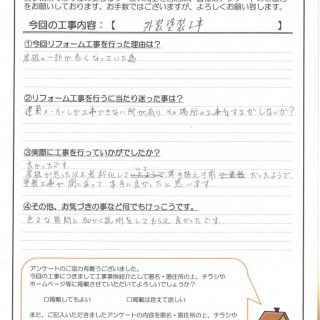 をお願いしております。お手数ではございますが、よろしくお願い致します。
今回の工事内容:【 外装塗装工事 】
①今回リフォーム工事を行った理由は?
屋根の一部が悪くなっていた為
②リフォーム工事を行うに当たり迷った事は?
建築メーカーしか工事できない所が有り その場所の工事をするかしないか?
③実際に工事を行っていかがでしたか?
良かったです。
屋根が思った以上老朽化していて 葺き替え寸前 だったようで、
塗装工事が間にあって 本当に良かったと思います。
④その他、お気づきの事など何でもけっこうです。
色々な質問に細かく説明をしてもらえ良かったです。
アンケートのご協力有難うございました。
今回の工事につきまして工事事例紹介として匿名・居住所の上、チラシや
ホームページ等に掲載させていただいてよろしいでしょうか?
□掲載してもよい □掲載は控えて欲しい
また、ご記入いただきましたアンケートの内容を匿名・居住所の上、チラシ